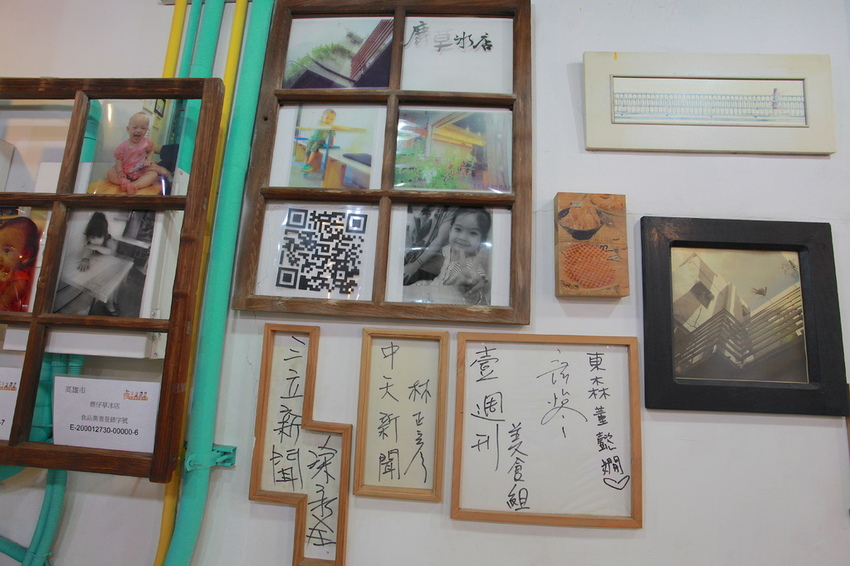 草冰店
高雄市
草冰店
食品業者登錄字號
E-200012730-00000-6
三立新聞
中天新聞
林
壹週刊
美食組
東森董懿嫻♡